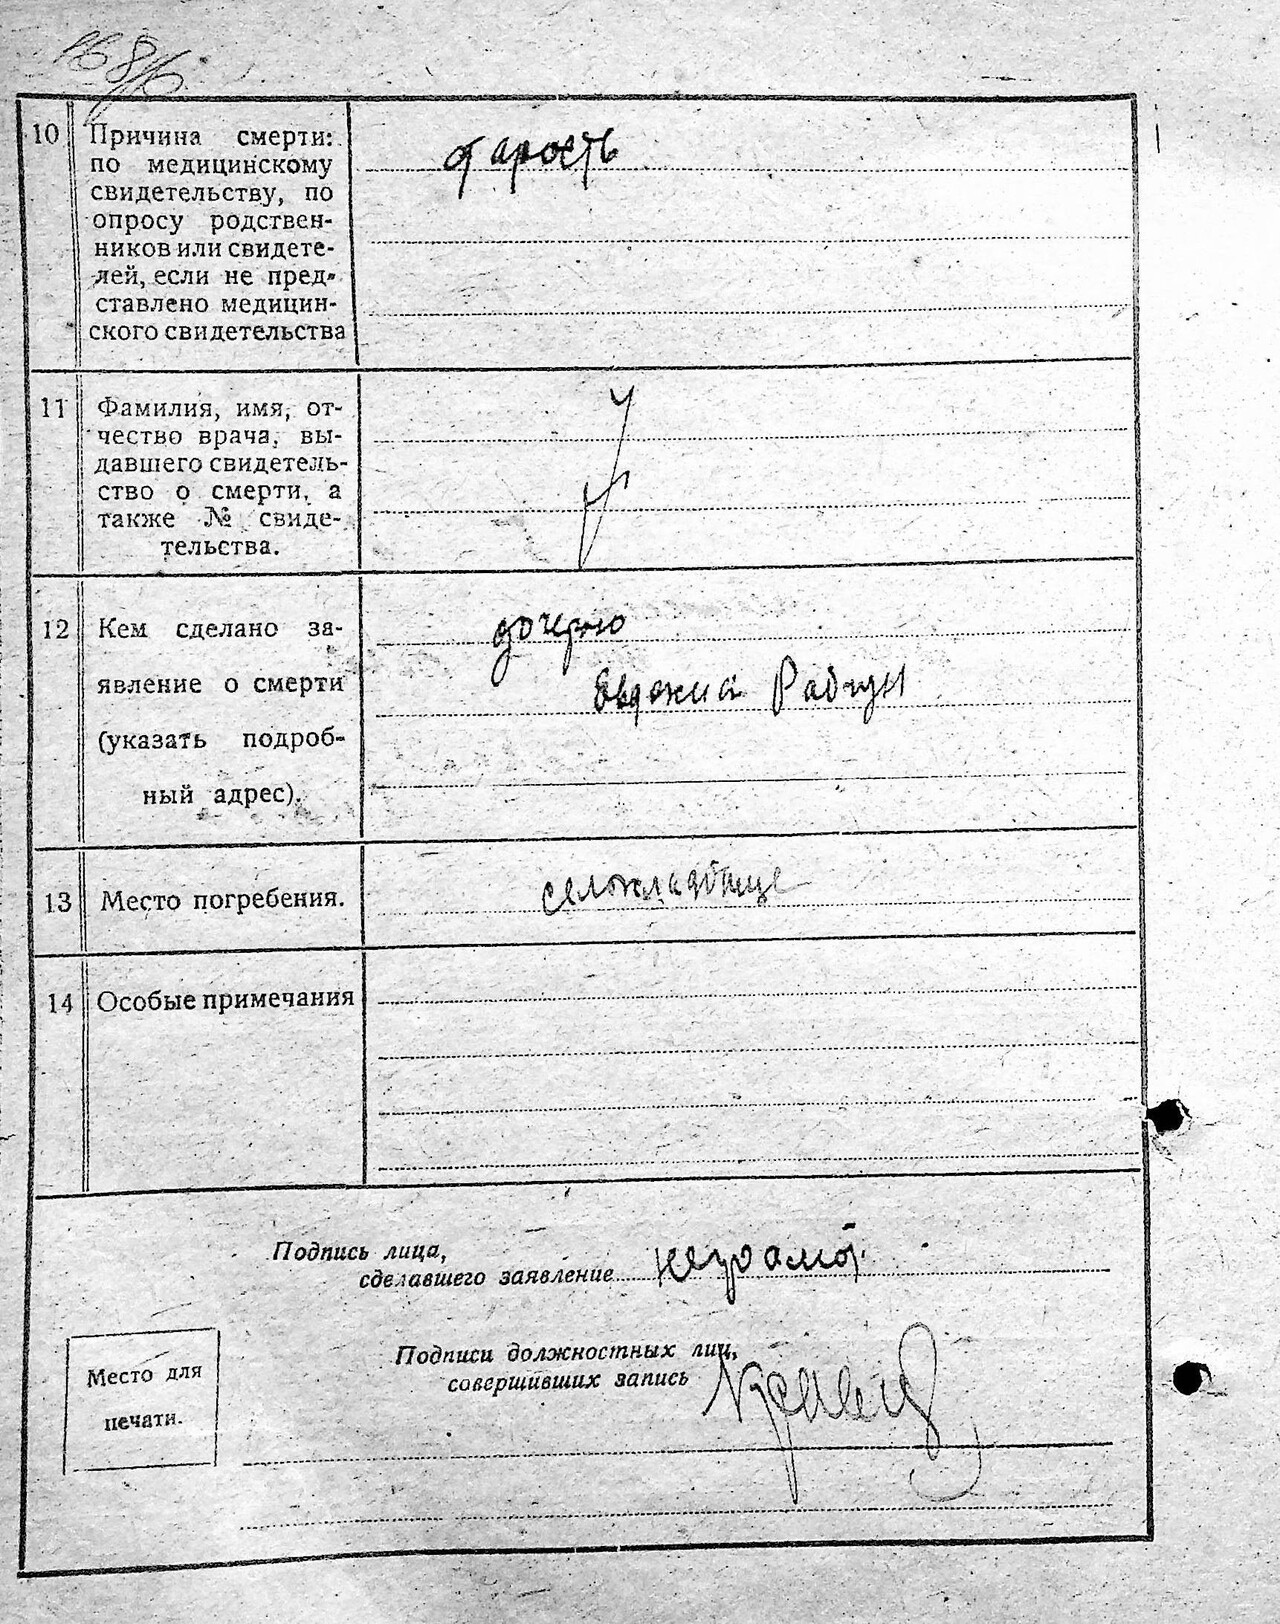 10 Причина смерти:
по медицинскому
свидетельству, по
опросу родствен-
ников или свидете-
лей, если не пред-
ставлено медицин-
ского свидетельства
старость
11 Фамилия, имя, от-
чество врача, вы-
давшего свидетель-
ство о смерти, а
также № свиде-
тельства.
12 Кем сделано за-
явление о смерти
(указать подроб-
ный адрес).
дочерью
Евдокия
13 Место погребения.
селокладбище
14 Особые примечания
Подпись лица,
сделавшего заявление неграмот.
Подписи должностных лиц,
совершивших запись
Место для
печати.